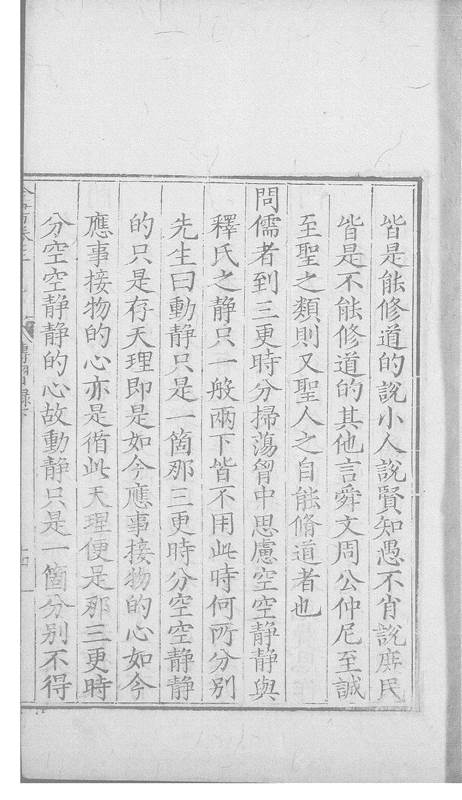 皆是能修道的說小人說賢知愚不肖說庶民
皆是不能修道的其他言舜文周公仲尼至誠
至聖之類則又聖人之自能脩道者也
問儒者到三更時分掃蕩胷中思慮空空静静與
釋氏之静只一般兩下皆不用此時何所分别
先生曰動静只是一箇那三更時分空空静静
的只是存天理即是如今應事接物的心如今
應事接物的心亦是循此天理便是那三更時
分空空静静的心故動静只是一箇分别不得